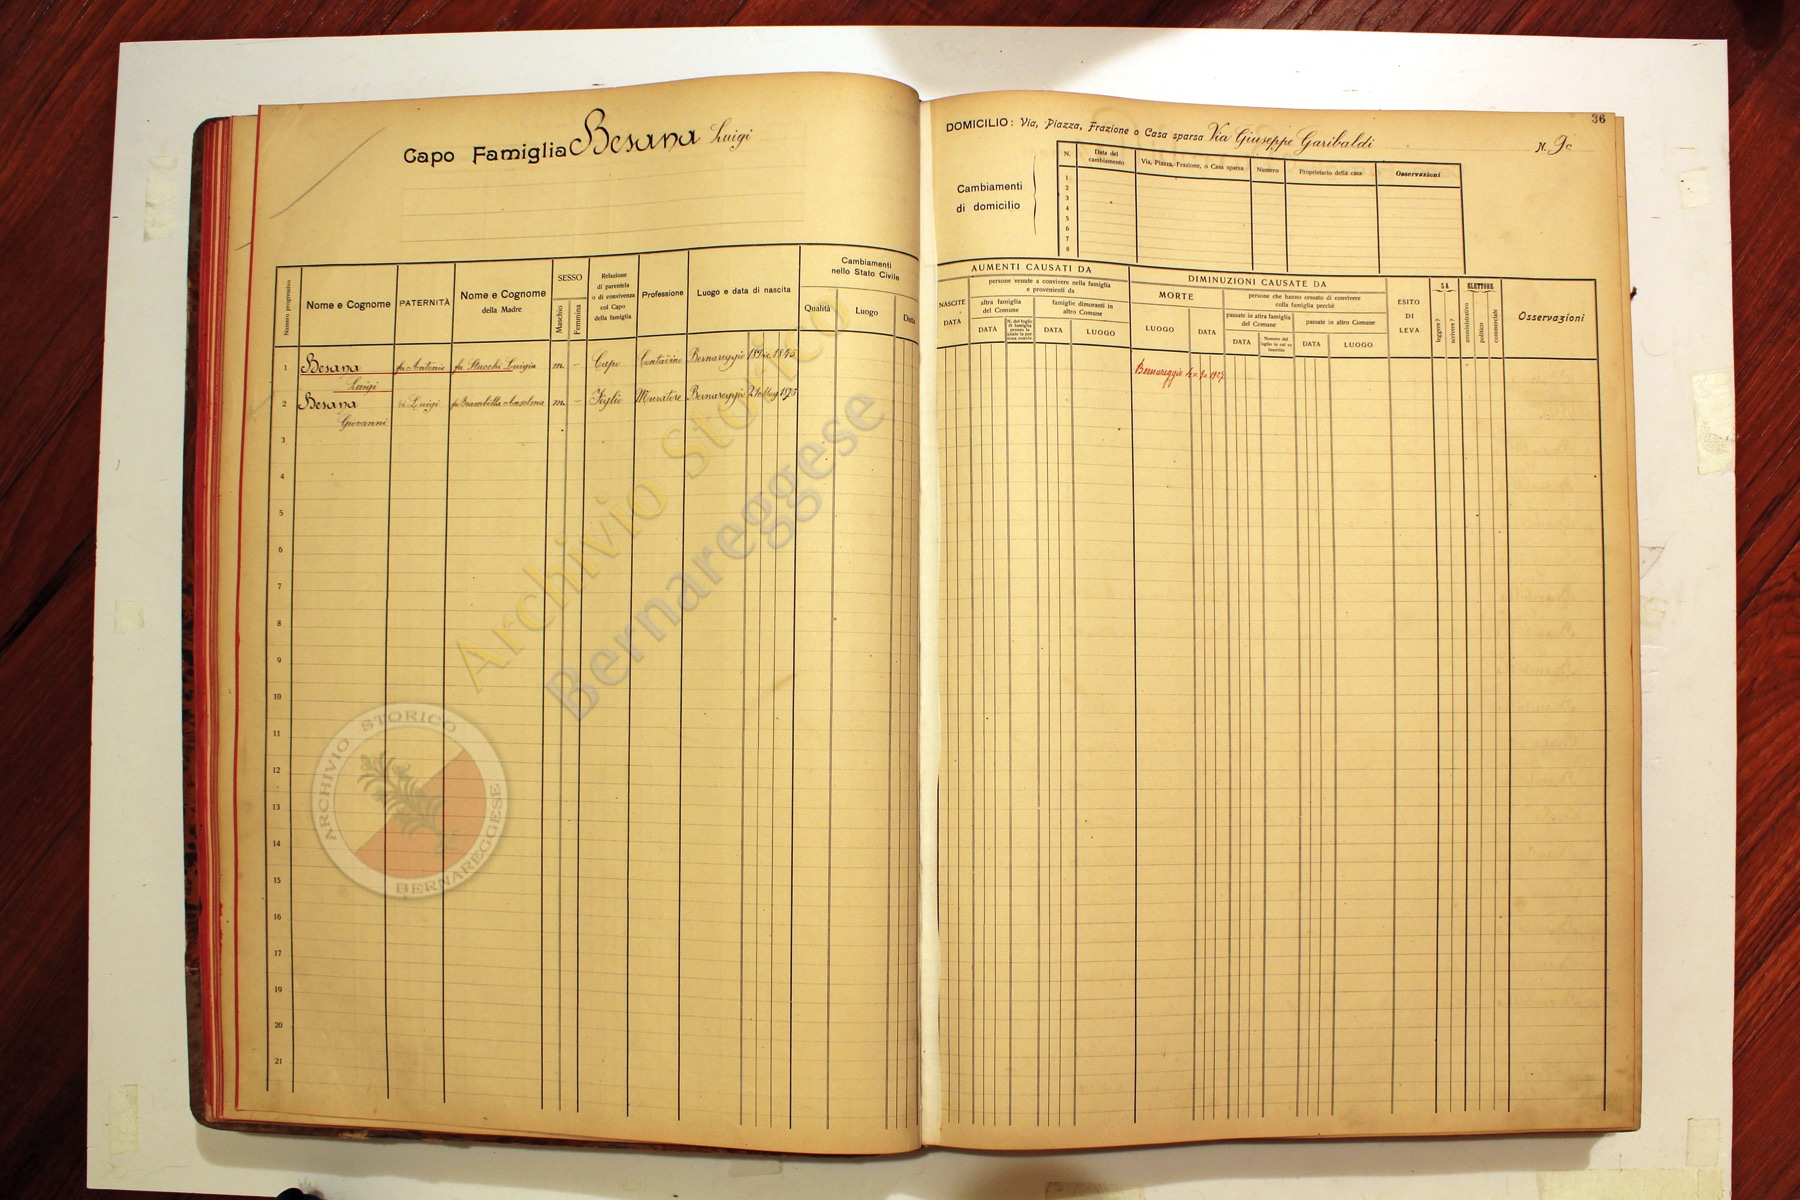 Capo Famiglia Besana Luigi
Numero progressivo
Nome e Cognome
PATERNITÀ
Nome e Cognome
della Madre
SESSO
Maschio
Femmina
Relazione
di parentela
o di convivenza
col Capo
della famiglia
Professione
Luogo e data di nascita
Cambiamenti
nello Stato Civile
Qualità
Luogo
Data
1 Besana fu Antonio fu Stucchi Luigia m. – Capo Contadino Bernareggio 1845
Luigi
2 Besana di Luigi fu Brambilla m. – Figlio Muratore Bernareggio 21 Mag 1875
Giovanni
3
4
5
6
7
8
9
10
11
12
13
14
15
16
17
18
19
20
21
Archivio Storico
Bernareggese
ARCHIVIO STORICO
BERNAREGGESE
36
DOMICILIO: Via, Piazza, Frazione o Casa sparsa Via Giuseppe Garibaldi N. 9c
Cambiamenti
di domicilio
N.
Data del
cambiamento
Via, Piazza, Frazione, o Casa sparsa
Numero
Proprietario della casa
Osservazioni
1
2
3
4
5
6
7
8
AUMENTI CAUSATI DA
NASCITE
DATA
persone venute a convivere nella famiglia
e provenienti da
altra famiglia
del Comune
DATA
N. del foglio
di famiglia
presso la
quale la per
sona convive
famiglie dimoranti in
altro Comune
DATA
LUOGO
DIMINUZIONI CAUSATE DA
MORTE
LUOGO
DATA
persone che hanno cessato di convivere
colla famiglia perchè
passate in altra famiglia
del Comune
DATA
Numero del
foglio in cui es
inscritto
passate in altro Comune
DATA
LUOGO
ESITO
DI
LEVA
SA
leggere?
scrivere?
ELETTORE
amministrativo
politico
commerciale
Osservazioni
Bernareggio 1927